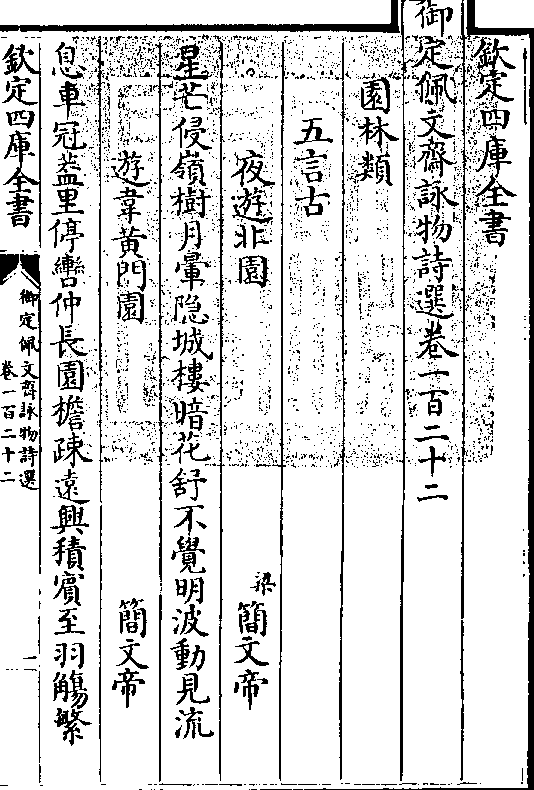 欽定四庫全書
御定佩文齋詠物詩選卷一百二十二
園林類
五言古
夜遊北園 梁 簡文帝
星芒侵嶺樹月暈隐城樓暗花舒不覺明波動見流
遊韋黄門園 簡文帝
息車冠蓋里停轡仲長園檐疎遠興積賔至羽觴繁
欽定四庫全書
御定佩文齋詠物詩選
卷一百二十二
一